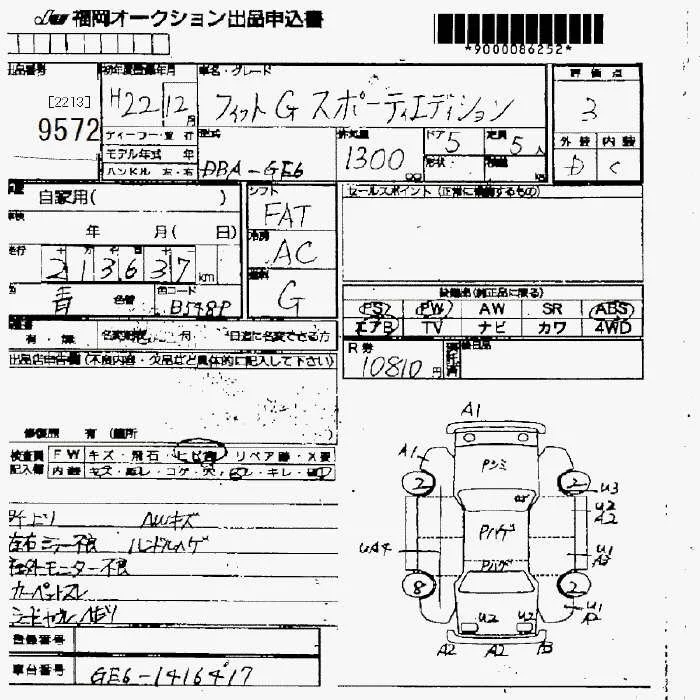 福岡オークション出品申込書
*9000086252*
出品番号 初年度登録年月 車名・グレード 評価点
[2213]
9572
H22 12月
フィット G スポーティエディション
3
ディーラー・並行
モデル年式 年
ハンドル 左・右
型式
DBA-GE6
排気量
1300 cc
ドア 5
形状
定員 5人
外装 内装
D C
自家用( )
シフト
FAT
セールスポイント(正常に機能するもの)
車検
年 月( 日)
冷房
AC
走行 十 万 千 百 十 一
213637 km
燃料
G
色 青 色替 色コード B548P
装備品(純正品に限る)
PS PW AW SR ABS
エアB TV ナビ カワ 4WD
有・無 名変期限 月 日迄に名変できる方
R券
10810円
後日品
出品店申告欄(不良内容・欠品など具体的に記入して下さい)
修復歴 有(箇所
検査員 FW キズ・飛石・ヒビ有・リペア跡・X要
記入欄 内装 キズ・
コゲ・穴
キレ
外ヨリ AWキズ
左右ミラー不良 ハンドルハゲ
車外モニター不良
カーペットスレ
登録番号
車台番号 GE6-1416417
A1
A1
Pシミ
2
2
U3
U2
A2
Pハゲ
UA4
U1
Pハゲ
8
2
U1
U2
U2
A2
A2